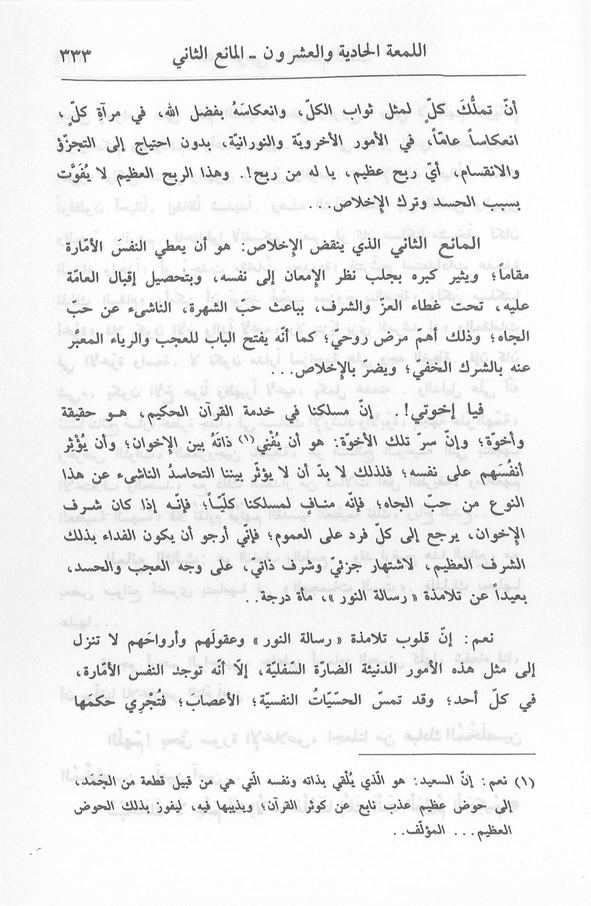 اللمعة الحادية والعشرون - المانع الثاني ٣٣٣
أنّ تملُّكَ كلٍّ لمثل ثواب الكلّ، وانعكاسَهُ بفضل الله، في مرآةِ كلٍّ،
انعكاساً عامّاً، في الأمور الأخرويّة والنورانيّة، بدون احتياج إلى التجزّؤ
والانقسام، أيّ ربح عظيم، يا له من ربح!. وهذا الربح العظيم لا يُفَوَّت
بسبب الحسد وترك الإخلاص...
المانع الثاني الذي ينقض الإخلاص: هو أن يعطي النفسَ الأمّارة
مقاماً؛ ويثير كبره بجلب نظر الإمعان إلى نفسه، وبتحصيل إقبال العامّة
عليه، تحت غطاء العزّ والشرف، بباعث حبّ الشهرة، الناشىء عن حبّ
الجاه؛ وذلك أهم مرض روحي؛ كما أنّه يفتح الباب للعجب والرياء المعبَّر
عنه بالشرك الخفيّ؛ ويضرّ بالإخلاص...
فيا إخوتي!. إنّ مسلكنا في خدمة القرآن الحكيم، هـو حقيقة
وأخوّة؛ وإنّ سرّ تلك الأخوّة: هو أن يُفْني(١) ذاتَهُ بين الإخوان؛ وأن يُؤْثِر
أنفُسَهم على نفسه؛ فلذلك لا بدّ أن لا يؤثّر بيننا التحاسدُ الناشىء عن هذا
النوع من حبّ الجاه؛ فإنّه منـافٍ لمسلكنا كلّيّـاً؛ فإنّـه إذا كان شـرف
الإخوان، يرجع إلى كلّ فرد على العموم؛ فإنّي أرجو أن يكون الفداء بذلك
الشرف العظيم، لاشتهار جزئيّ وشرف ذاتيّ، على وجه العجب والحسد،
بعيداً عن تلامذة «رسالة النور»، مأة درجة..
نعم: إنّ قلوب تلامذة «رسالة النور» وعقولَهم وأرواحَهم لا تنزل
إلى مثل هذه الأمور الدنيئة الضارّة السّفليّة، إلّا أنّه توجد النفس الأمّارة،
في كلّ أحد؛ وقد تمسّ الحسّيّاتُ النفسيّة؛ الأعصابَ؛ فتُجْري حكمها
(١) نعم: إنّ السعيد: هو الّذي يُلْقي بذاته ونفسه الّتي هي من قبيل قطعة من الجَمَد،
إلى حوض عظيم عذب نابع عن كوثر القرآن؛ ويذيبها فيه، ليفوز بذلك الحوض
العظيم... المؤلّف..